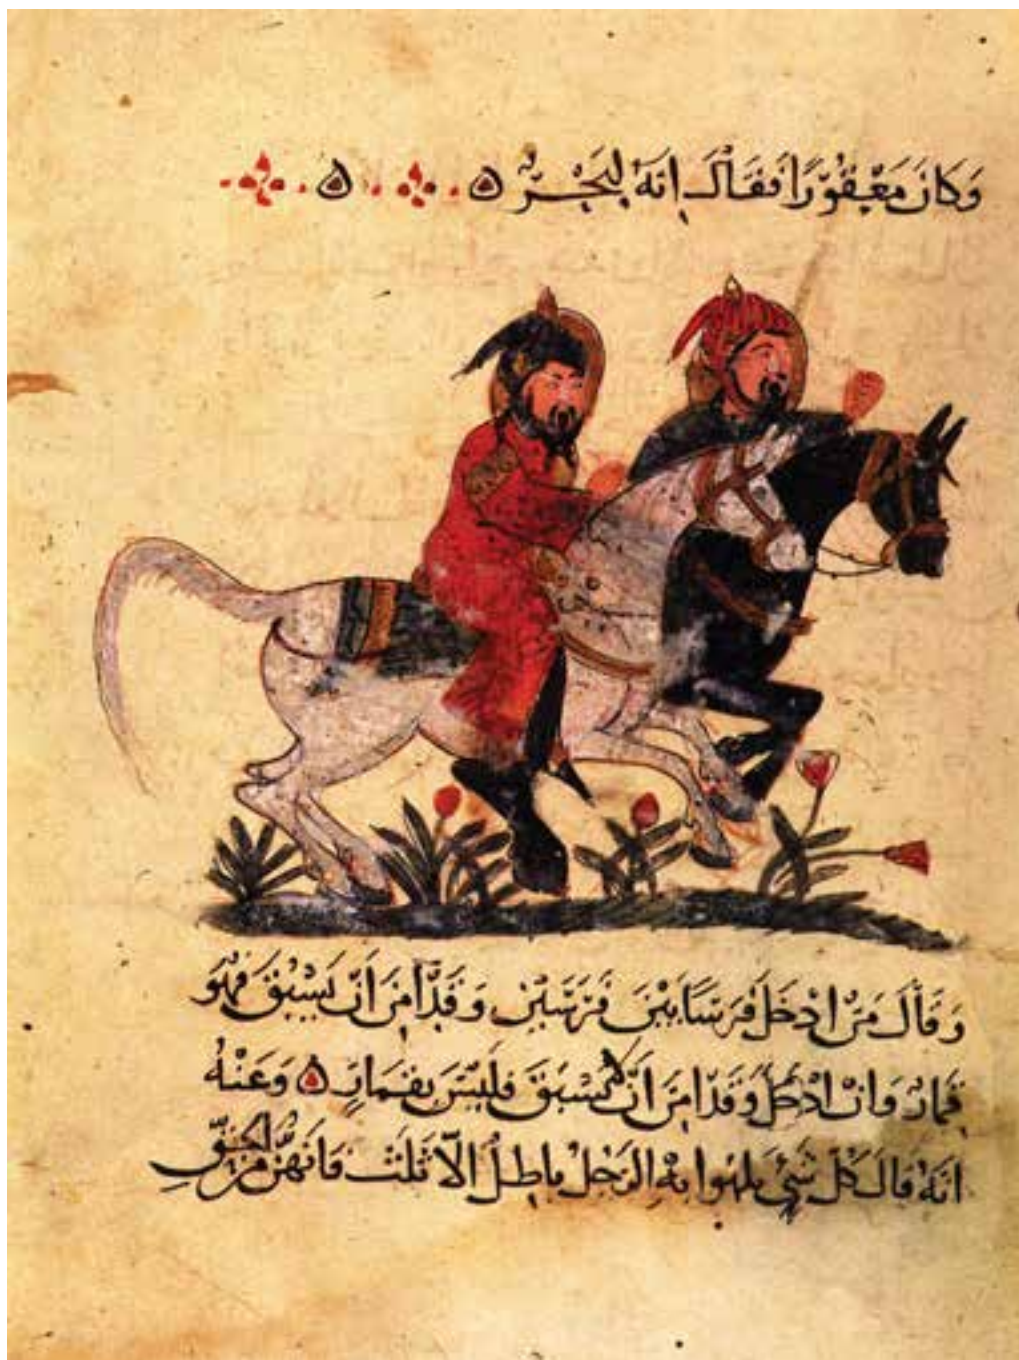 وَكَانَ مَعْقُوْرًا فَقَالَ اِنَّهُ لَبَحْرٌ ه ه
وَقَالَ مَنْ ادْخَلَ فَرَسًا بَيْنَ فَرَسَيْنِ وَقَدْ اَمِنَ اَنْ يَسْبِقَ فَهُوَ
قِمَارٌ وَانْ ادْخَلَ وَقَدْ اَمِنَ اَنْ لا يسْبَقَ فَلَيْسَ بِقِمَارٍ ه وَعَنْهُ
انَّهُ قَالَ كُلّ شَيْ يَلْهُوا بِهِ الرَّجُلُ بَاطِلٌ الَّا ثَلَث فَانَّهُنَّ مِنَ الْحَقِّ